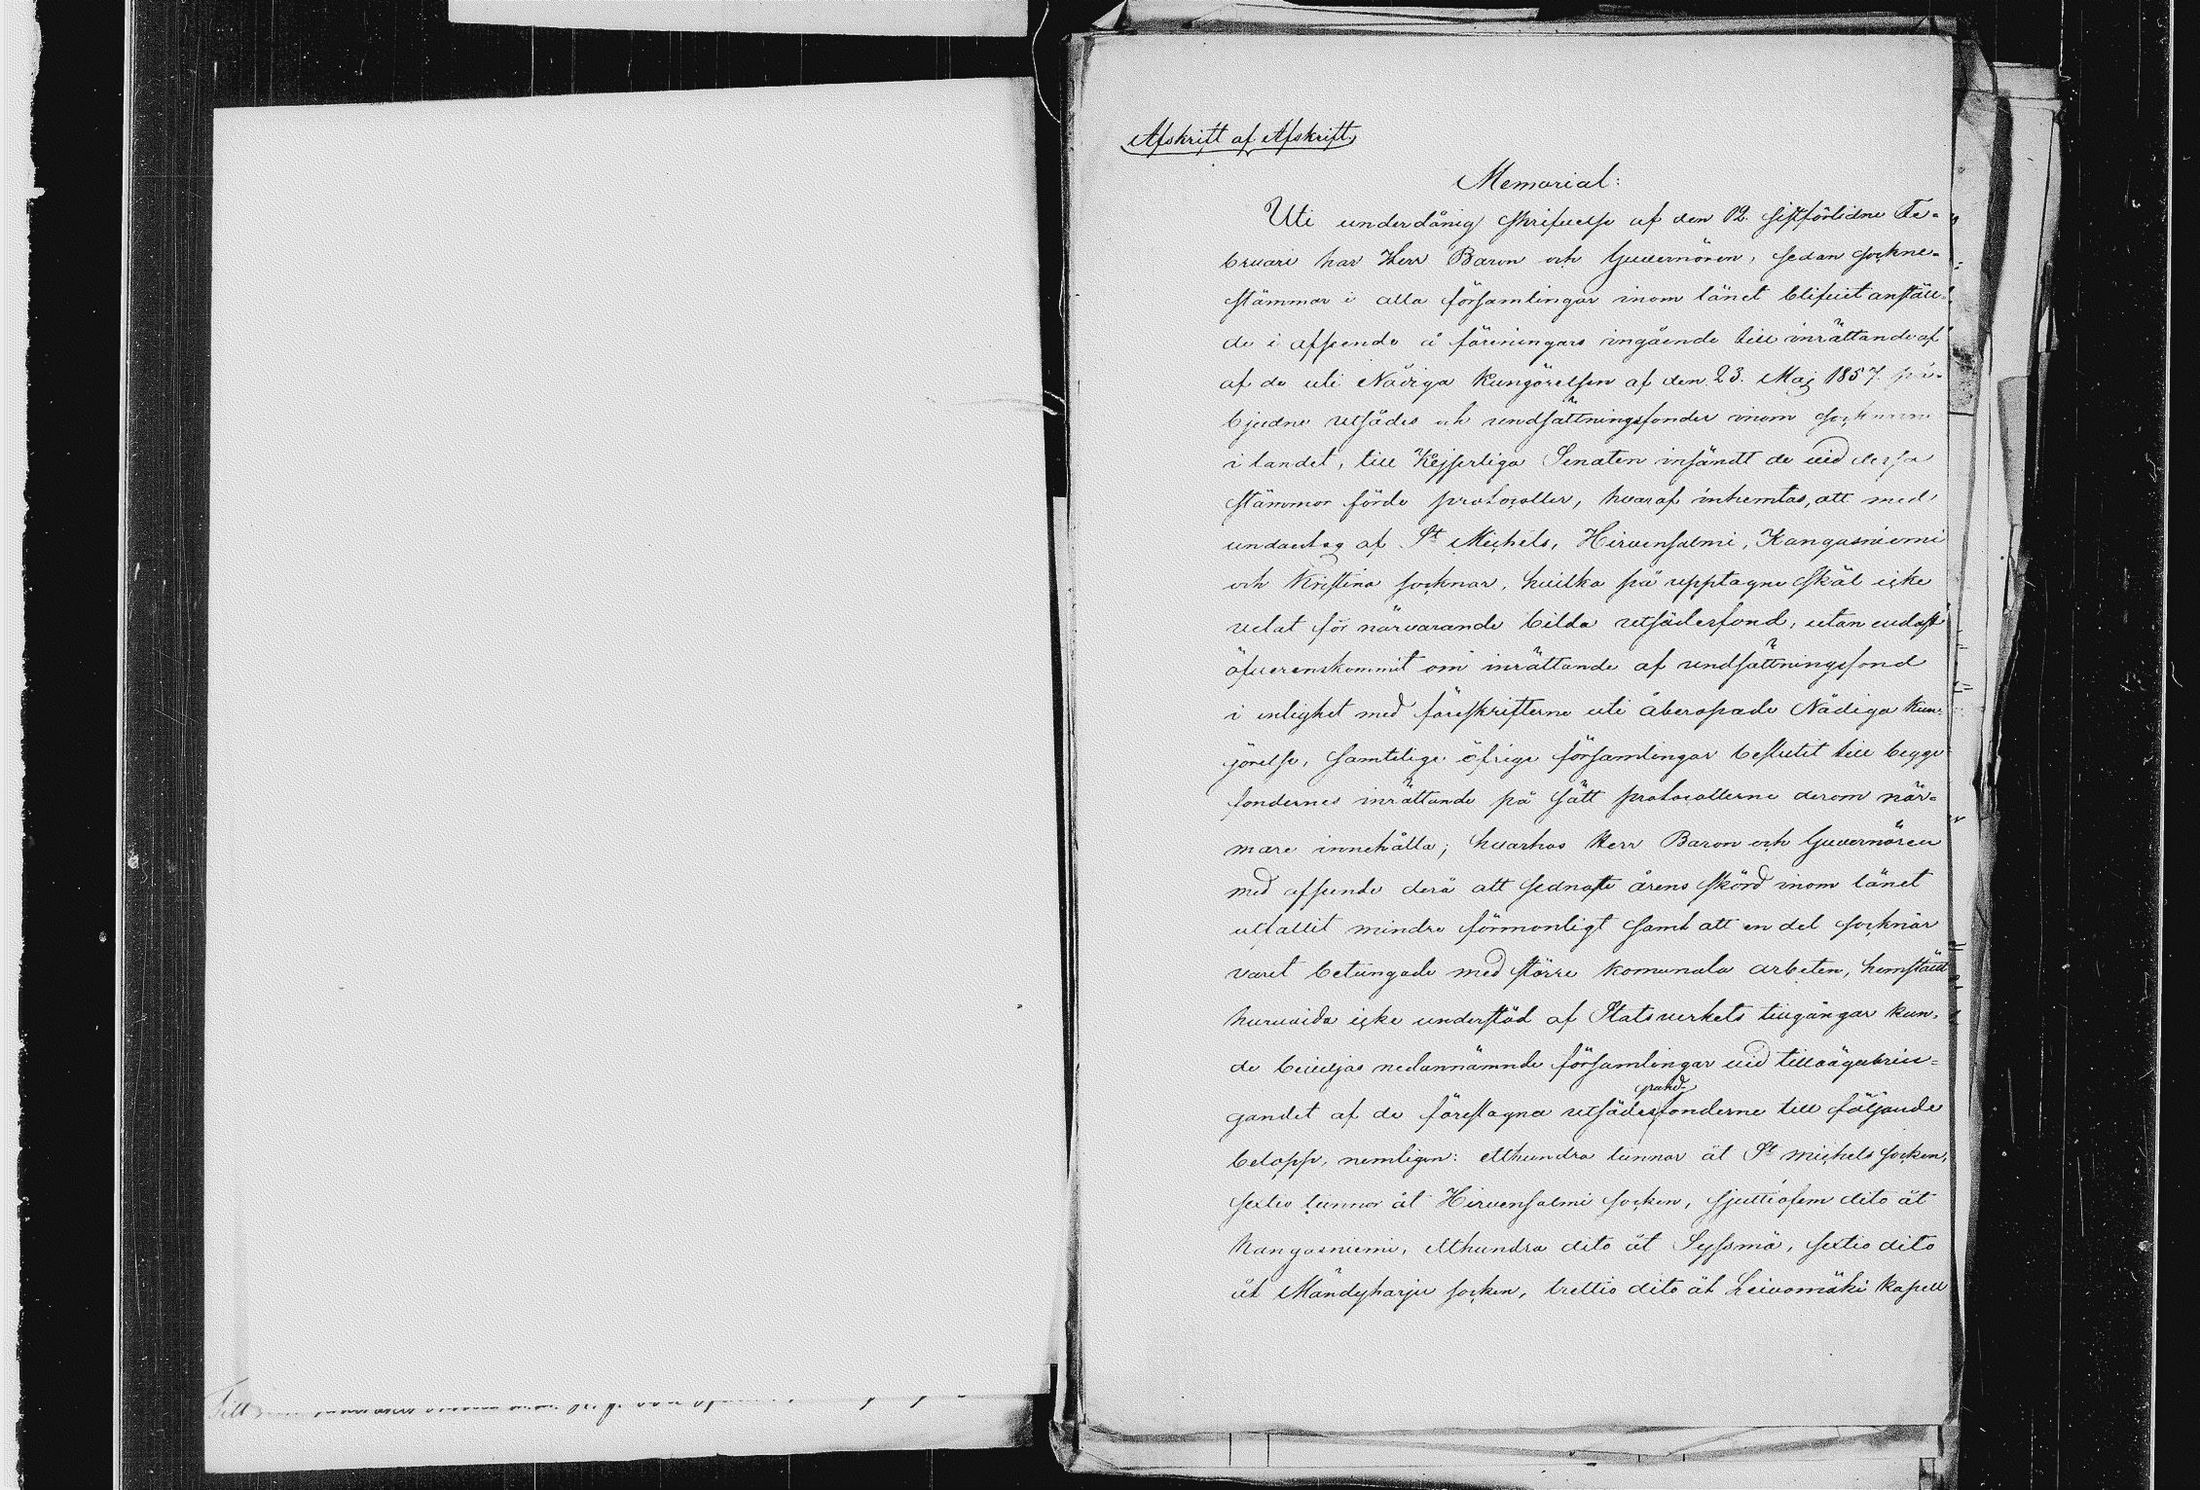 Afskrift af Afskrift
Memorial:
Uti underdånig skrifvelse af den 12. sistförlidne Fe-
bruari har Herr Baron och Guvernören, sedan sockne-
stämmor i alla församlingar inom länet blifvit anstäl-
de i afseende å föreningars ingående till inrättande af
af de uti Nådiga Kungörelsen af den 23. Maj 1857. på-
bjudne utsädes och undsättningsfonder inom socknarne
i landet, till Kejserliga Senaten insändt de vid dessa
stämmor förde protocoller, hvaraf inhemtas, att med
undantag af St Michels, Hirvensalmi, Kangasniemi
och Kristina socknar, hvilka på upptagne skäl icke
velat för närvarande bilda utsädesfond, utan endast
öfverenskommit om inrättande af undsättningsfond
i enlighet med föreskrifterne uti åberopade Nådiga Kun-
görelse, samtelige öfrige församlingar beslutit till begge
fondernes inrättande på sätt protocollerne derom när-
mare innehålla; hvarhos Herr Baron och Guvernören
med afseende derå att sednaste årens skörd inom länet
utfallit mindre förmonligt samt att en del socknar
varit betungade med större komunala arbeten, hemstäld
huruvida icke understöd af Statsverkets tillgångar kun-
de beviljas nedannämnde församlingar vid tillvägabrin-
gandet af de föreslagna utsädesfonderne till följande
grund-
belopp, nemligen: etthundra tunnor åt St Michels socken,
sextio tunnor åt Hirvensalmi socken, sjuttiofem dito åt
Kangasniemi, etthundra dito åt Syssmä, sextio dito
åt Mändyharju socken, trettio dito åt Leivomäki kapell
Till